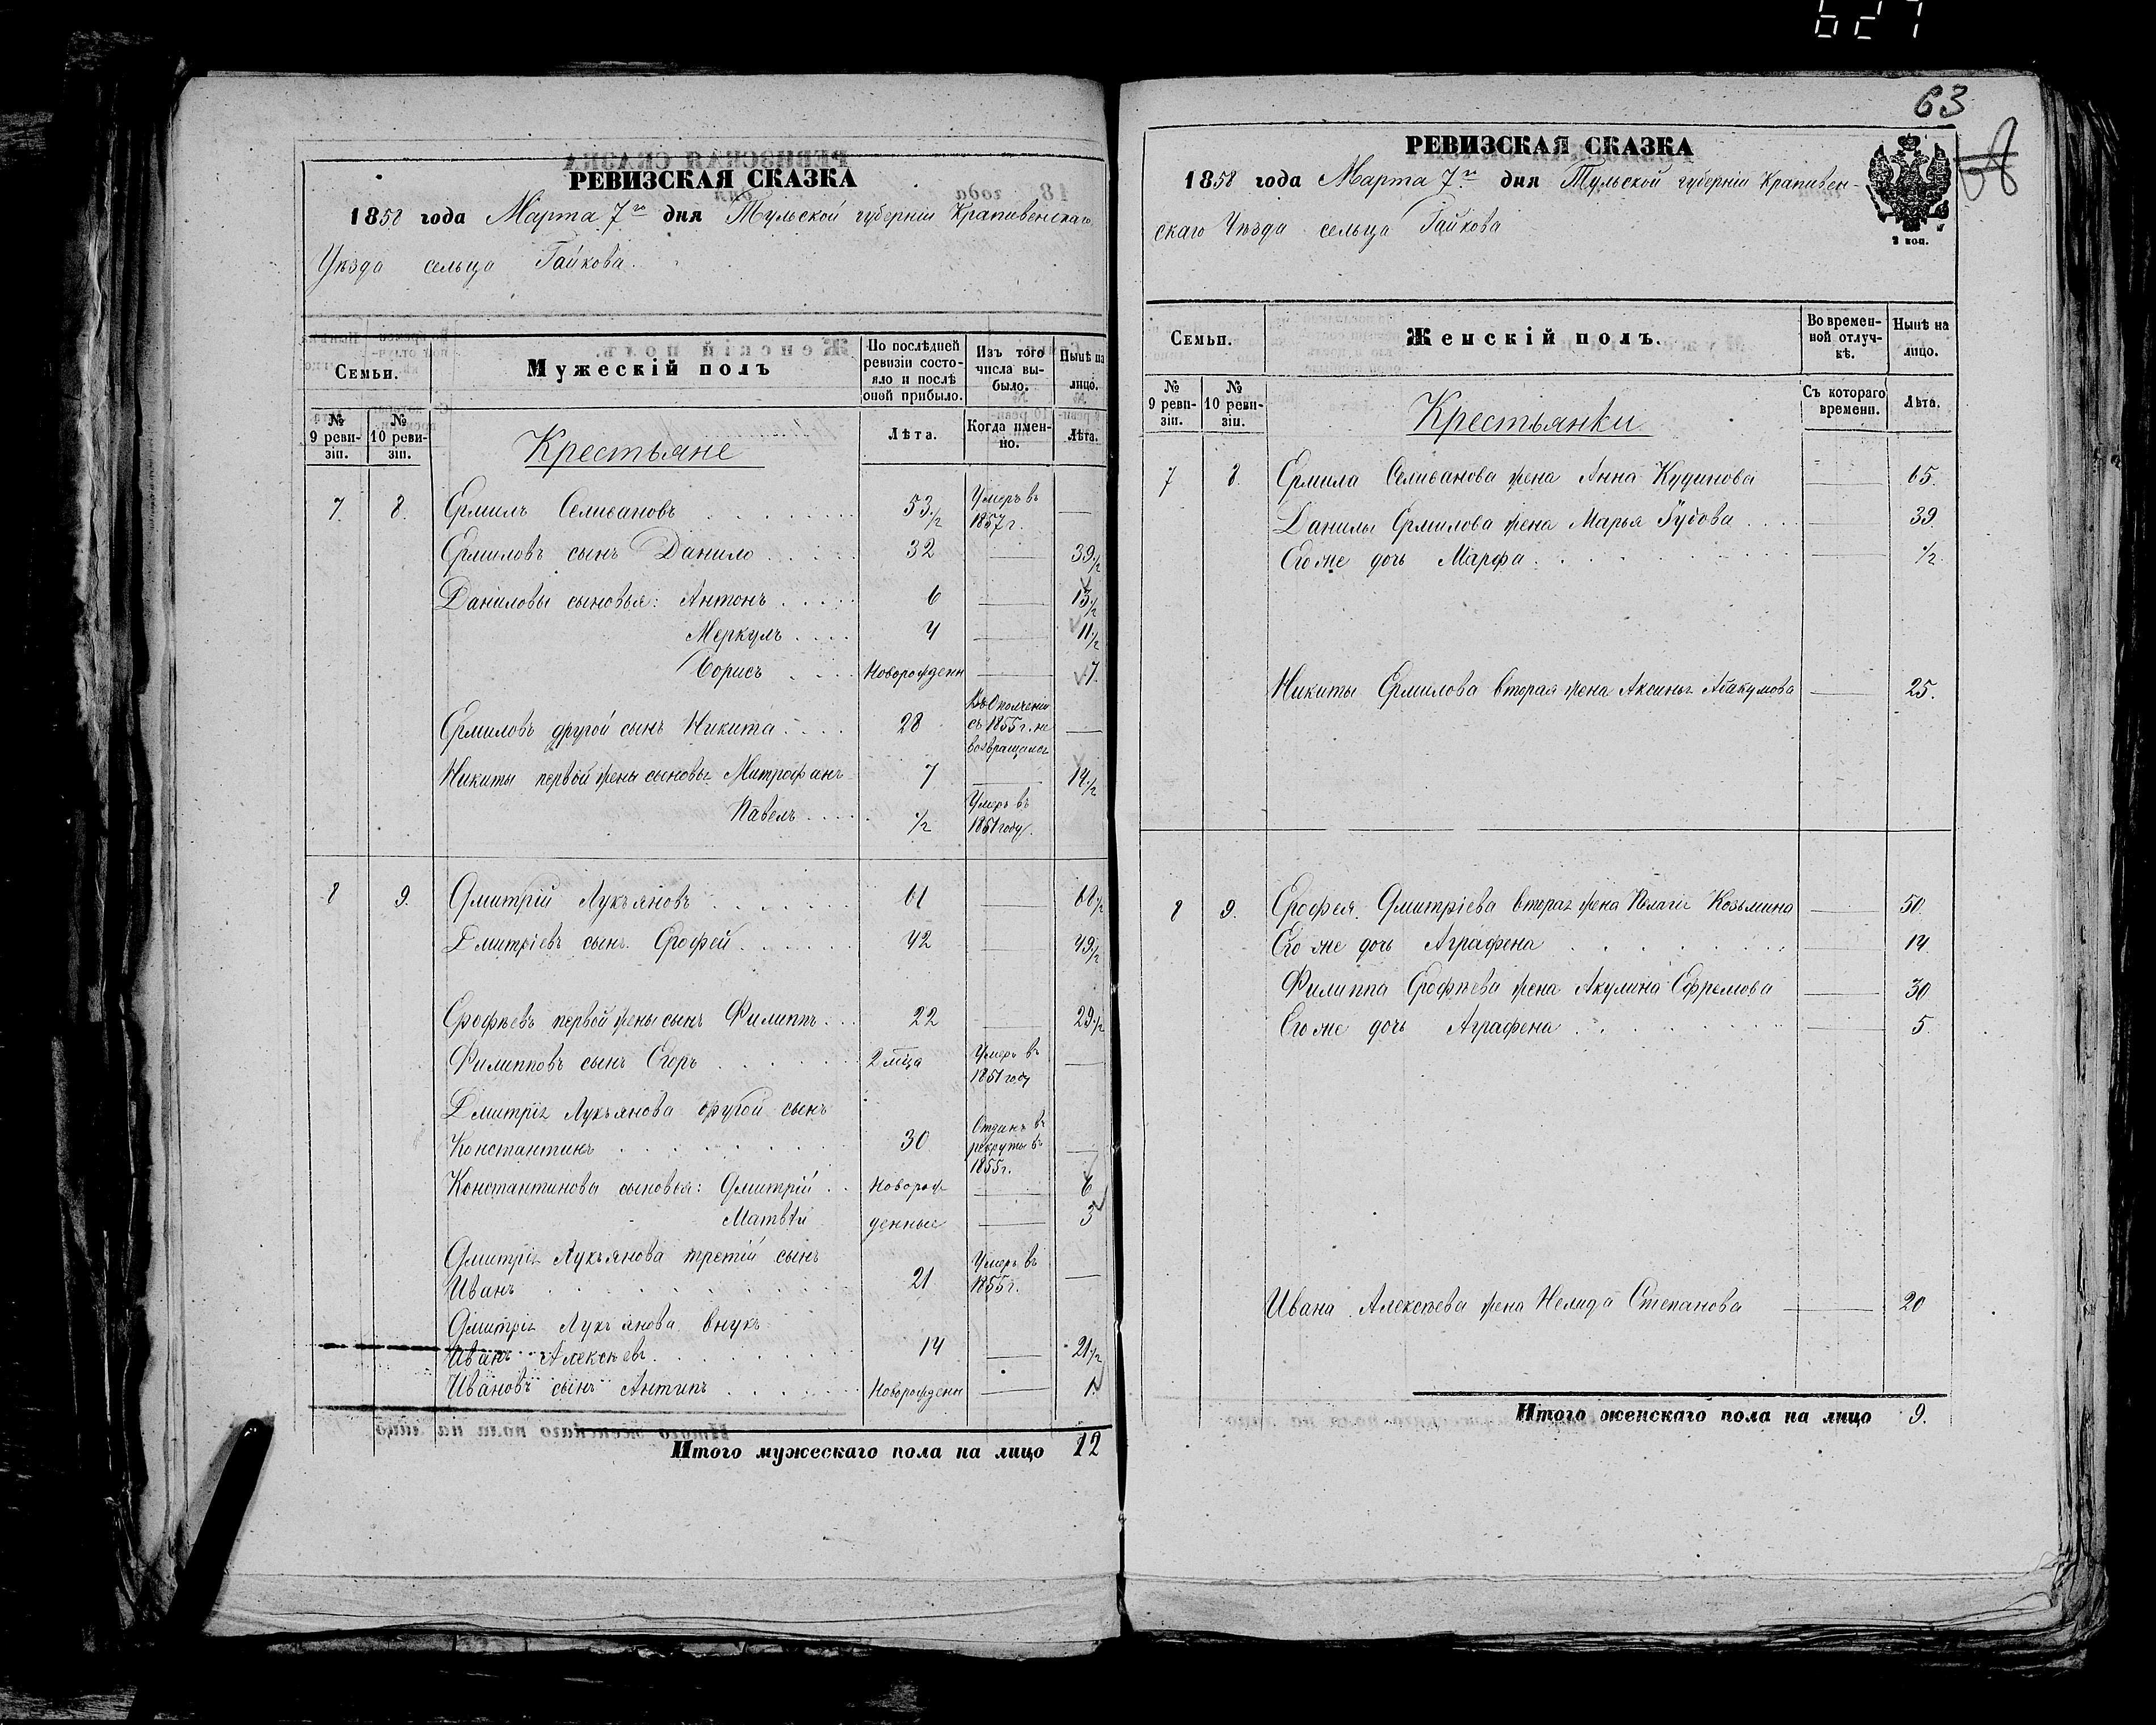 627
РЕВИЗСКАЯ СКАЗКА
1858 года Марта 7го дня Тульской губерніи Крапивенскаго
Уѣзда сельца Гайкова.
Семьи.
Мужескій полъ
По послѣдней ревизіи состояло и послѣ оной прибыло.
Изъ того числа выбыло.
Нынѣ на лицо.
№ 9 ревизіи.
№ 10 ревизіи.
Крестьяне
Лѣта.
Когда именно.
Лѣта.
7. 8. Ермилъ Селивановъ 53 1/2 Умеръ въ 1857 г. —
Ермиловъ сынъ Данило 32 — 39 1/2
Даниловы сыновья: Антонъ 6 — 13 1/2
Меркулъ 4 — 11 1/2
Борисъ Новорожденн — 7.
Ермиловъ другой сынъ Никита 28 Въ Ополченіи съ 1855 г. не возвращался —
Никиты первой жены сыновья Митрофанъ 7 — 14 1/2
Павелъ 1/2 Умеръ въ 1851 году.
8 9. Дмитрій Лукьяновъ 61 — 68 1/2
Дмитріевъ сынъ Ерофей 42 — 49 1/2
Ерофѣевъ первой жены сынъ Филиппъ 22 — 29 1/2
Филипповъ сынъ Егоръ 2 мѣца Умеръ въ 1851 году —
Дмитрія Лукьянова другой сынъ
Константинъ 30 Отданъ въ рекруты въ 1855 г. —
Константиновы сыновья: Дмитрій Новорож — 6
Матвѣй денные — 3
Дмитрія Лукьянова третій сынъ
Иванъ 21 Умеръ въ 1855 г. —
Дмитрія Лукьянова внукъ
Иванъ Алексѣевъ 14 — 21 1/2
Ивановъ сынъ Антипъ Новорожденн — 1.
Итого мужескаго пола на лицо 12
63
РЕВИЗСКАЯ СКАЗКА
1858 года Марта 7го дня Тульской губерніи Крапивен-
скаго Уѣзда сельца Гайкова
2 коп.
Семьи.
Женскій полъ.
Во временной отлучкѣ.
Нынѣ на лицо.
№ 9 ревизіи.
№ 10 ревизіи.
Крестьянки
Съ котораго времени.
Лѣта.
7 8. Ермила Селиванова жена Анна Кудинова — 65.
Данилы Ермилова жена Марья Губова — 39.
Его же дочь Марфа — 1/2
Никиты Ермилова вторая жена Аксинья Абакумова — 25.
8 9. Ерофея Дмитріева вторая жена Пелагія Козьмина — 50.
Его же дочь Аграфена — 14
Филиппа Ерофѣева жена Акулина Ефремова — 30
Его же дочь Аграфена — 5.
Ивана Алексѣева жена Степанова — 20
Итого женскаго пола на лицо 9.